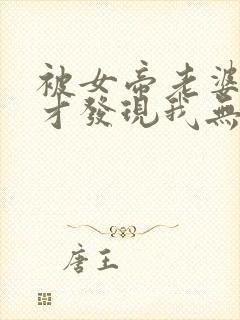 被女帝老婆
才發現我無
唐王